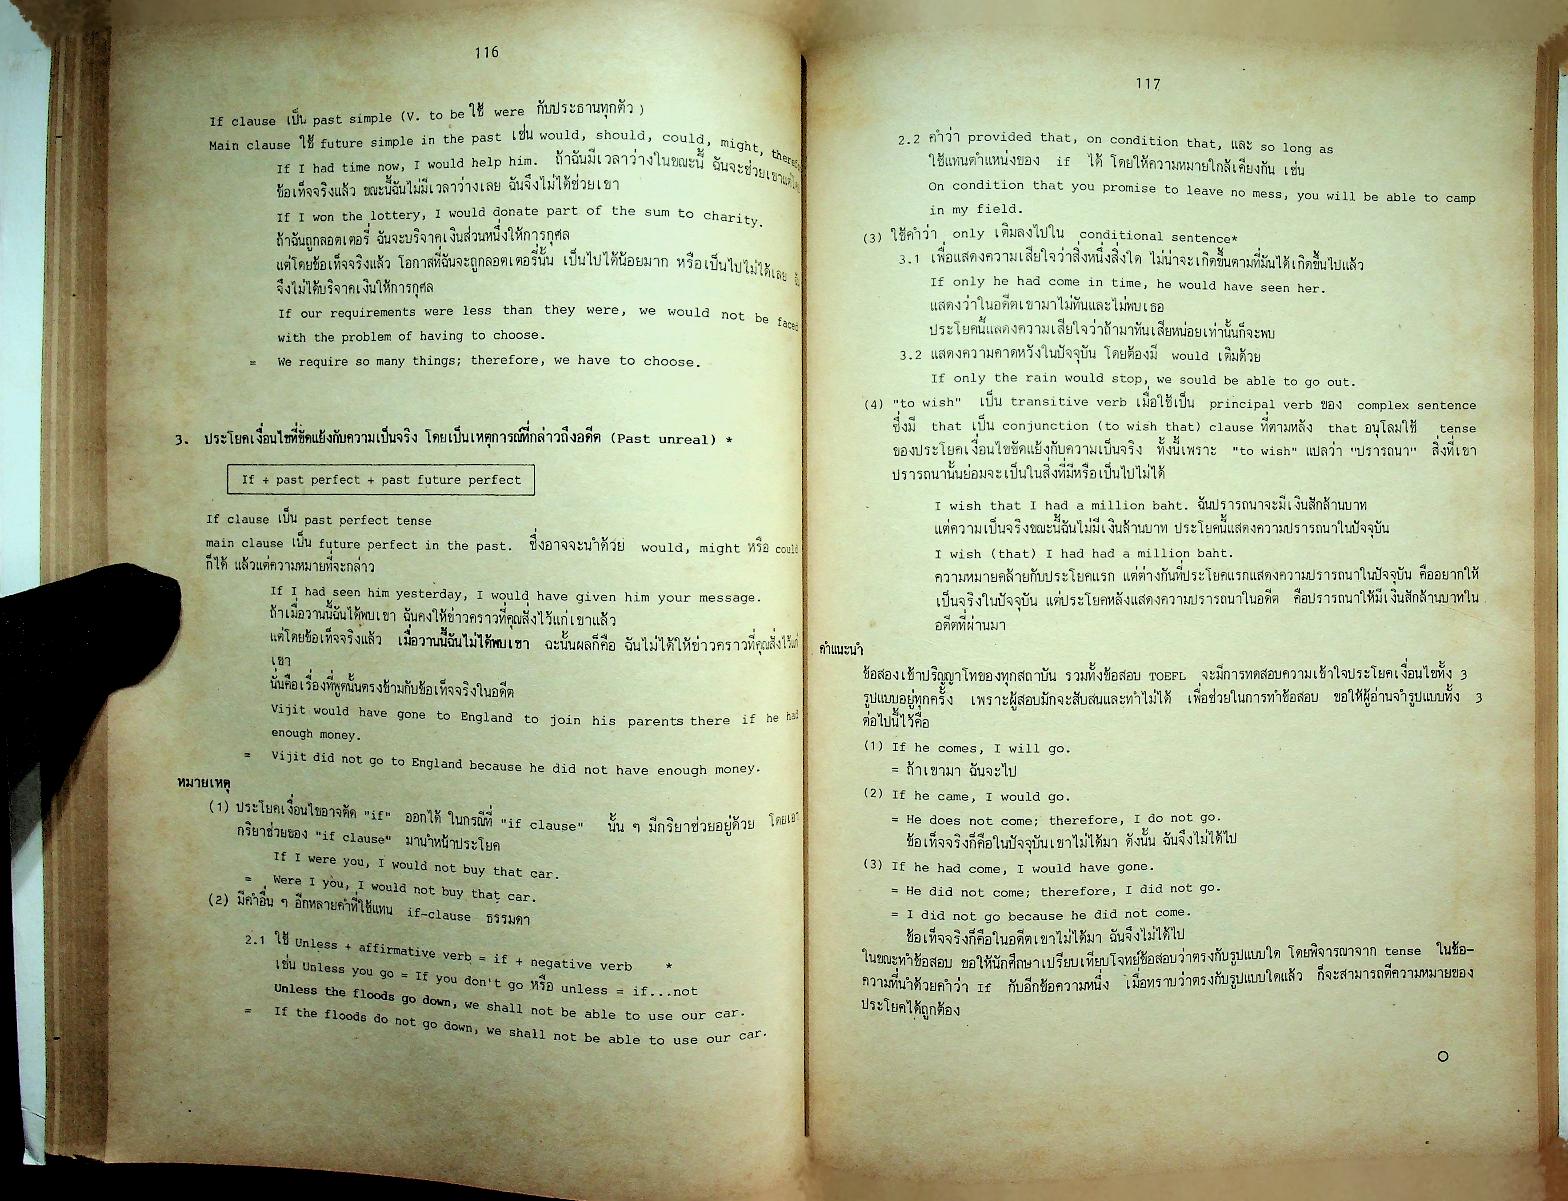 116
If clause เป็น past simple (V. to be ใช้ were กับประธานทุกตัว )
Main clause ใช้ future simple in the past เช่น would, should, could, might,
If I had time now, I would help him. ถ้าฉันมีเวลาว่างในขณะนี้ ฉันจะช่วยเขา
ข้อเท็จจริงแล้ว ขณะนี้ฉันไม่มีเวลาว่างเลย ฉันจึงไม่ได้ช่วยเขา
If I won the lottery, I would donate part of the sum to charity.
ถ้าฉันถูกลอตเตอรี่ ฉันจะบริจาคเงินส่วนหนึ่งให้การกุศล
แต่โดยข้อเท็จจริงแล้ว โอกาสที่ฉันจะถูกลอตเตอรี่นั้น เป็นไปได้น้อยมาก หรือเป็นไปไม่ได้เลย
จึงไม่ได้บริจาคเงินให้การกุศล
If our requirements were less than they were, we would not be faced
with the problem of having to choose.
= We require so many things; therefore, we have to choose.
3. ประโยคเงื่อนไขที่ขัดแย้งกับความเป็นจริง โดยเป็นเหตุการณ์ที่กล่าวถึงอดีต (Past unreal) *
If + past perfect + past future perfect
If clause เป็น past perfect tense
main clause เป็น future perfect in the past. ซึ่งอาจจะนำด้วย would, might หรือ could
ก็ได้ แล้วแต่ความหมายที่จะกล่าว
If I had seen him yesterday, I would have given him your message.
ถ้าเมื่อวานนี้ฉันได้พบเขา ฉันคงให้ข่าวคราวที่คุณสั่งไว้แก่เขาแล้ว
แต่โดยข้อเท็จจริงแล้ว เมื่อวานนี้ฉันไม่ได้พบเขา ฉะนั้นผลก็คือ ฉันไม่ได้ให้ข่าวคราวที่คุณสั่งไว้แก่
เขา
นั่นคือเรื่องที่พูดนั้นตรงข้ามกับข้อเท็จจริงในอดีต
Vijit would have gone to England to join his parents there if he had
enough money.
= Vijit did not go to England because he did not have enough money.
หมายเหตุ
(1) ประโยคเงื่อนไขอาจตัด "if" ออกได้ ในกรณีที่ "if clause" นั้น ๆ มีกริยาช่วยอยู่ด้วย โดยเอา
กริยาช่วยของ "if clause" มานำหน้าประโยค
If I were you, I would not buy that car.
= Were I you, I would not buy that car.
(2) มีคำอื่น ๆ อีกหลายคำที่ใช้แทน if-clause ธรรมดา
2.1 ใช้ Unless + affirmative verb = if + negative verb *
เช่น Unless you go = If you don't go หรือ unless = if...not
Unless the floods go down, we shall not be able to use our car.
= If the floods do not go down, we shall not be able to use our car.
117
2.2 คำว่า provided that, on condition that, และ so long as
ใช้แทนตำแหน่งของ if ได้ โดยให้ความหมายใกล้เคียงกัน เช่น
On condition that you promise to leave no mess, you will be able to camp
in my field.
(3) ใช้คำว่า only เติมลงไปใน conditional sentence*
3.1 เพื่อแสดงความเสียใจว่าสิ่งหนึ่งสิ่งใด ไม่น่าจะเกิดขึ้นตามที่มันได้เกิดขึ้นไปแล้ว
If only he had come in time, he would have seen her.
แสดงว่าในอดีตเขามาไม่ทันและไม่พบเธอ
ประโยคนี้แสดงความเสียใจว่าถ้ามาทันเสียหน่อยเท่านั้นก็จะพบ
3.2 แสดงความคาดหวังในปัจจุบัน โดยต้องมี would เติมด้วย
If only the rain would stop, we sould be able to go out.
(4) "to wish" เป็น transitive verb เมื่อใช้เป็น principal verb ของ complex sentence
ซึ่งมี that เป็น conjunction (to wish that) clause ที่ตามหลัง that อนุโลมใช้ tense
ของประโยคเงื่อนไขขัดแย้งกับความเป็นจริง ทั้งนี้เพราะ "to wish" แปลว่า "ปรารถนา" สิ่งที่เขา
ปรารถนานั้นย่อมจะเป็นในสิ่งที่มีหรือเป็นไปไม่ได้
I wish that I had a million baht. ฉันปรารถนาจะมีเงินสักล้านบาท
แต่ความเป็นจริงขณะนี้ฉันไม่มีเงินล้านบาท ประโยคนี้แสดงความปรารถนาในปัจจุบัน
I wish (that) I had had a million baht.
ความหมายคล้ายกับประโยคแรก แต่ต่างกันที่ประโยคแรกแสดงความปรารถนาในปัจจุบัน คืออยากให้
เป็นจริงในปัจจุบัน แต่ประโยคหลังแสดงความปรารถนาในอดีต คือปรารถนาให้มีเงินสักล้านบาทใน
อดีตที่ผ่านมา
คำแนะนำ
ข้อสองเข้าปริญญาโทของทุกสถาบัน รวมทั้งข้อสอบ TOEFL จะมีการทดสอบความเข้าใจประโยคเงื่อนไขทั้ง 3
รูปแบบอยู่ทุกครั้ง เพราะผู้สอบมักจะสับสนและทำไม่ได้ เพื่อช่วยในการทำข้อสอบ ขอให้ผู้อ่านจำรูปแบบทั้ง 3
ต่อไปนี้ไว้คือ
(1) If he comes, I will go.
= ถ้าเขามา ฉันจะไป
(2) If he came, I would go.
= He does not come; therefore, I do not go.
ข้อเท็จจริงก็คือในปัจจุบันเขาไม่ได้มา ดังนั้น ฉันจึงไม่ได้ไป
(3) If he had come, I would have gone.
= He did not come; therefore, I did not go.
= I did not go because he did not come.
ข้อเท็จจริงก็คือในอดีตเขาไม่ได้มา ฉันจึงไม่ได้ไป
ในขณะทำข้อสอบ ขอให้นักศึกษาเปรียบเทียบโจทย์ข้อสอบว่าตรงกับรูปแบบใด โดยพิจารณาจาก tense ในข้อ-
ความที่นำด้วยคำว่า If กับอีกข้อความหนึ่ง เมื่อทราบว่าตรงกับรูปแบบใดแล้ว ก็จะสามารถตีความหมายของ
ประโยคได้ถูกต้อง